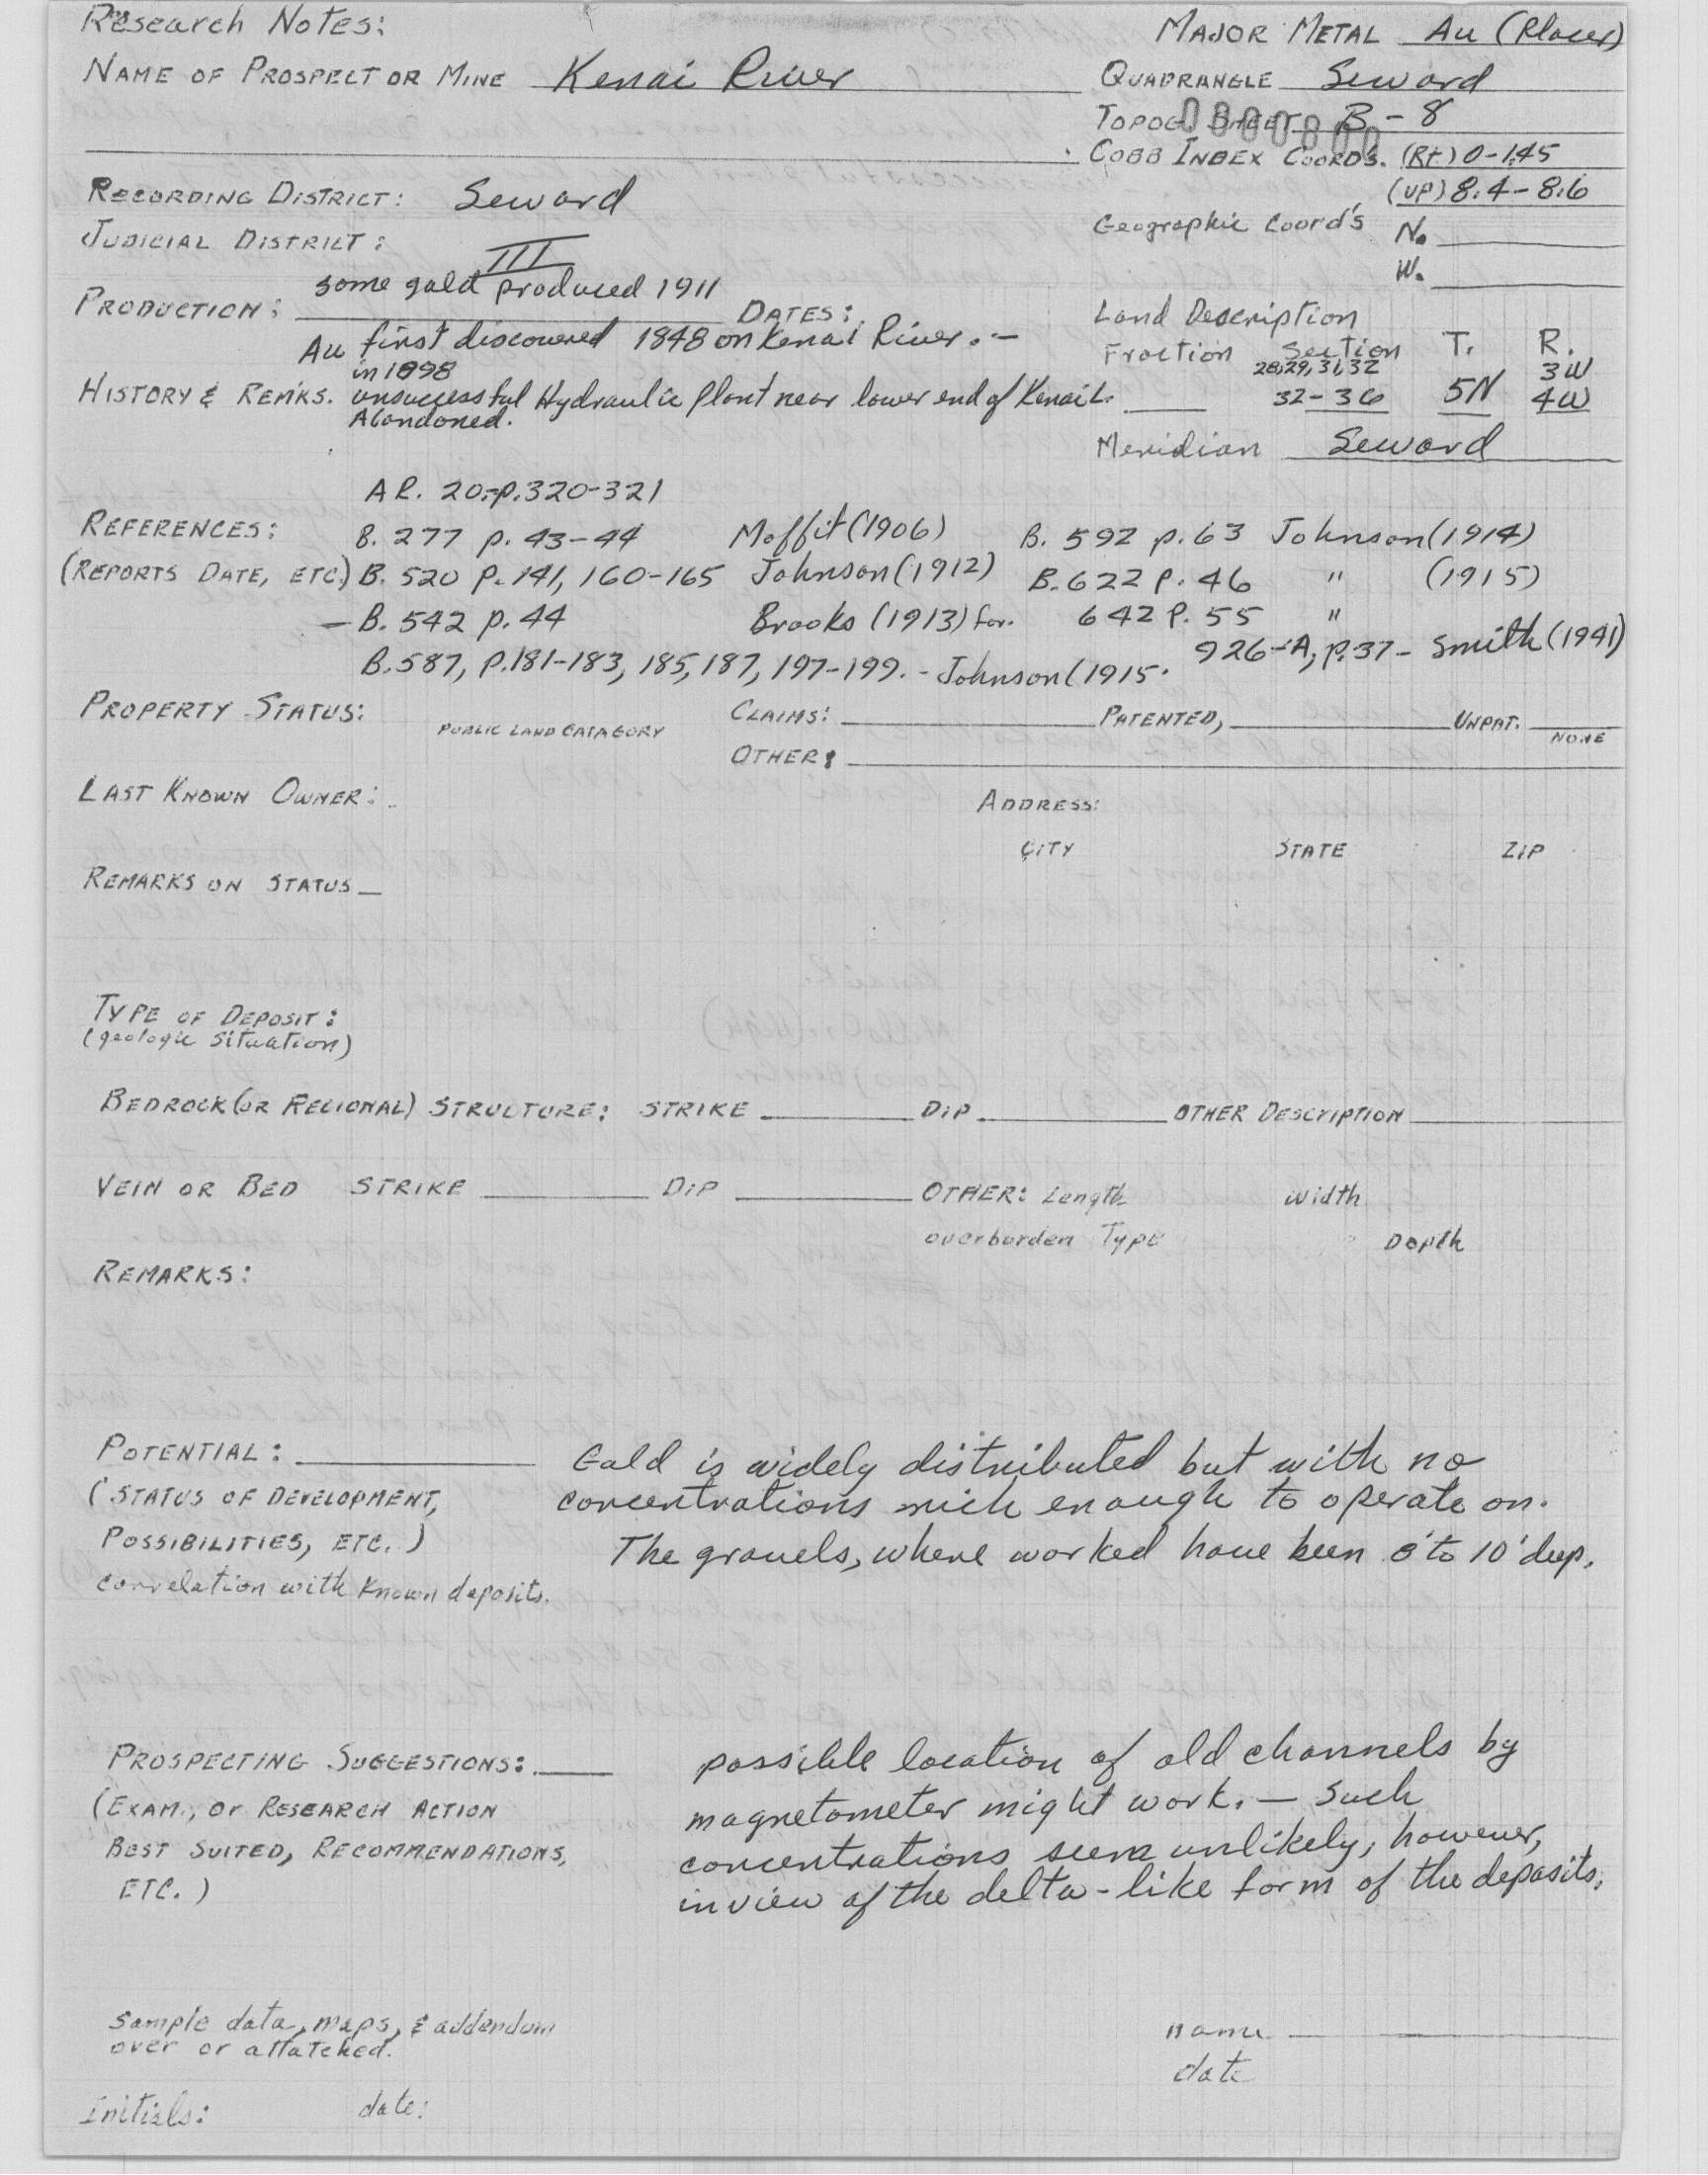 Research Notes:
MAJOR METAL Au (Placer)
NAME OF PROSPECT OR MINE Kenai River
QUADRANGLE Seward
TOPOG. SHEET B-8
COBB INDEX COORDS. (Rt) 0-1.45
(UP) 8.4-8.6
RECORDING DISTRICT: Seward
Geographic Coord's N.
W.
JUDICIAL DISTRICT: III
PRODUCTION: some gold produced 1911 DATES:
Au first discovered 1848 on Kenai River. -
Land Description
Fraction Section T. R.
28,29,31,32 3W
32-36 5N 4W
Meridian Seward
HISTORY & REMKS. in 1898
unsuccessful Hydraulic Plant near lower end of Kenai L.
Abandoned.
AR. 20,-p.320-321
REFERENCES: B. 277 p. 43-44 Moffit (1906) B. 592 p. 63 Johnson (1914)
(REPORTS DATE, ETC.) B. 520 P. 141, 160-165 Johnson (1912) B. 622 P. 46 " (1915)
- B. 542 p. 44 Brooks (1913) for. 642 P. 55 "
B. 587, P.181-183, 185, 187, 197-199. - Johnson (1915. 926-A, p.37- Smith (1941)
PROPERTY STATUS: PUBLIC LAND CATAGORY CLAIMS: PATENTED, UNPAT. NONE
OTHER:
LAST KNOWN OWNER: ADDRESS:
CITY STATE ZIP
REMARKS ON STATUS
TYPE OF DEPOSIT:
(geologic situation)
BEDROCK (OR REGIONAL) STRUCTURE: STRIKE DIP OTHER DESCRIPTION
VEIN OR BED STRIKE DIP OTHER: Length width
overborden Type Depth
REMARKS:
POTENTIAL: Gold is widely distributed but with no
(STATUS OF DEVELOPMENT, concentrations rich enough to operate on.
POSSIBILITIES, ETC.) The gravels, where worked have been 8' to 10' deep.
correlation with known deposits.
PROSPECTING SUGGESTIONS: possible location of old channels by
(EXAM., or RESEARCH ACTION magnetometer might work. - Such
BEST SUITED, RECOMMENDATIONS, concentrations seem unlikely, however,
ETC.) in view of the delta-like form of the deposits.
sample data, maps, & addendum
over or attatched.
name
date
Initials: date: